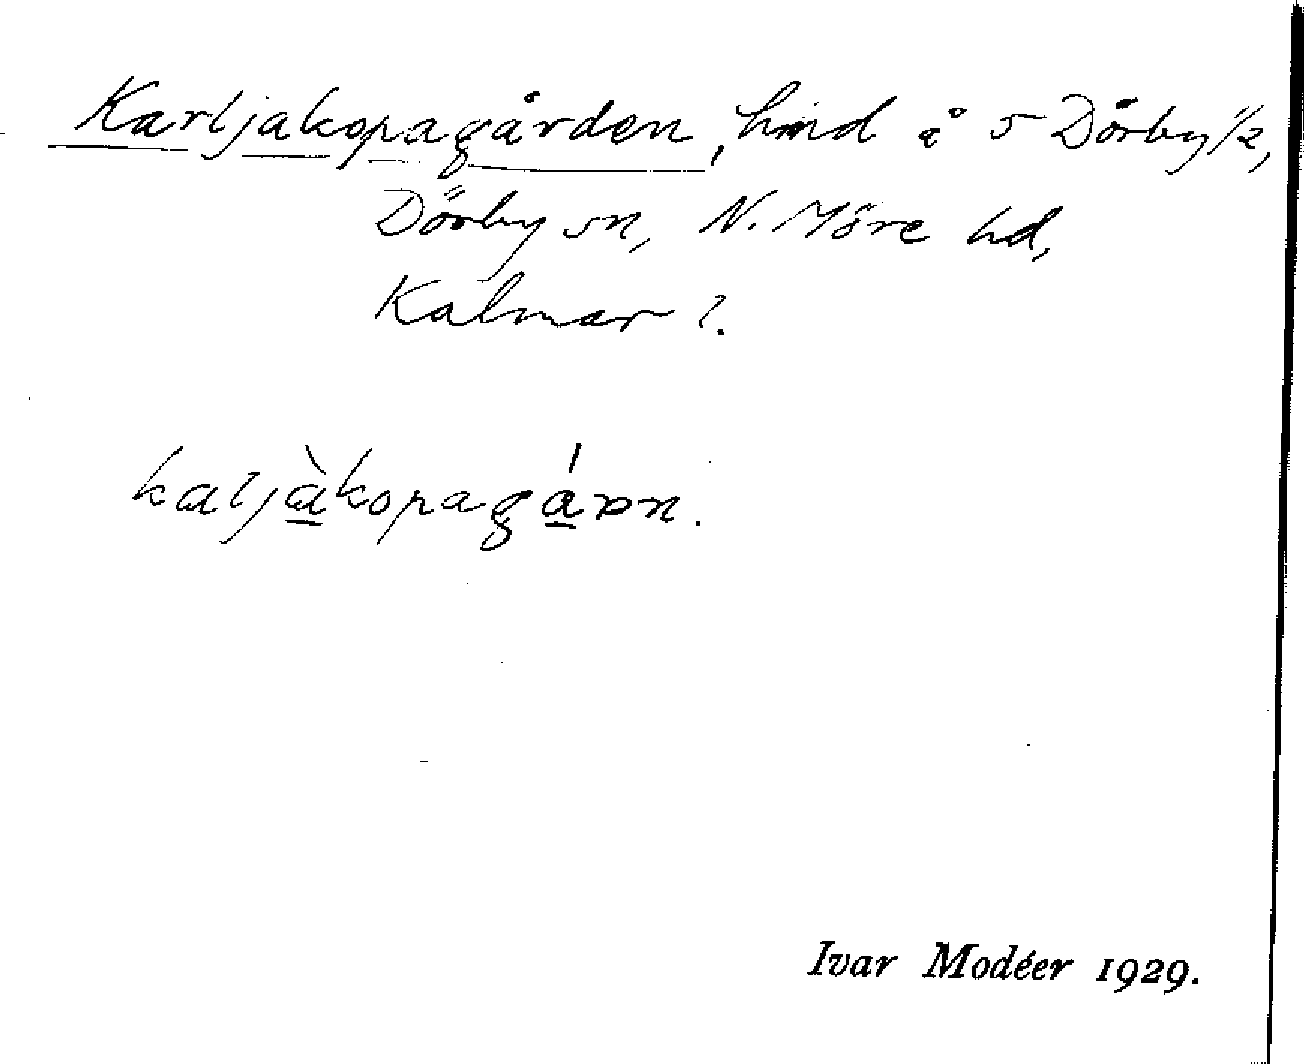 Karljakopagården, hmd å 5 Dörby 1/2,
Dörby sn, N. Möre hd,
Kalmar l.
kaljàkopagárn.
Ivar Modéer 1929.